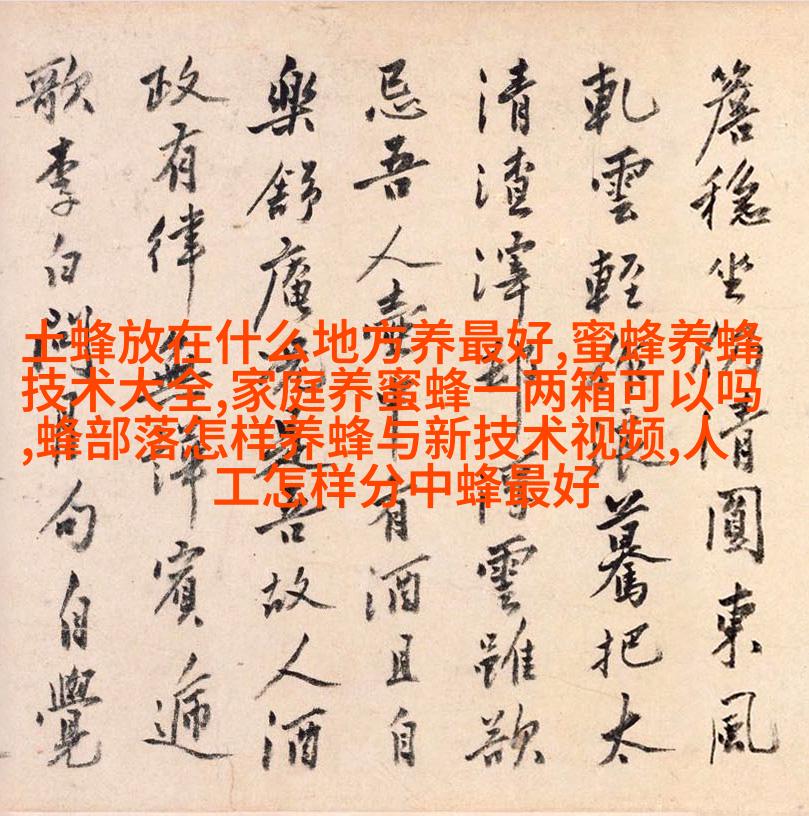 土蜂放在什么地方养最好,蜜蜂养蜂
技术大全,家庭养蜜蜂一两箱可以吗
,蜂部落怎样养蜂与新技术视频,人
工怎样分中蜂最好
簷穩坐清圓東風
軋雲輕驀把太
清渣滓雲雖欲
忌吾人有酒且自
樂舒庵是吾故人酒
政有律無賓遞
歌李白問句自覺